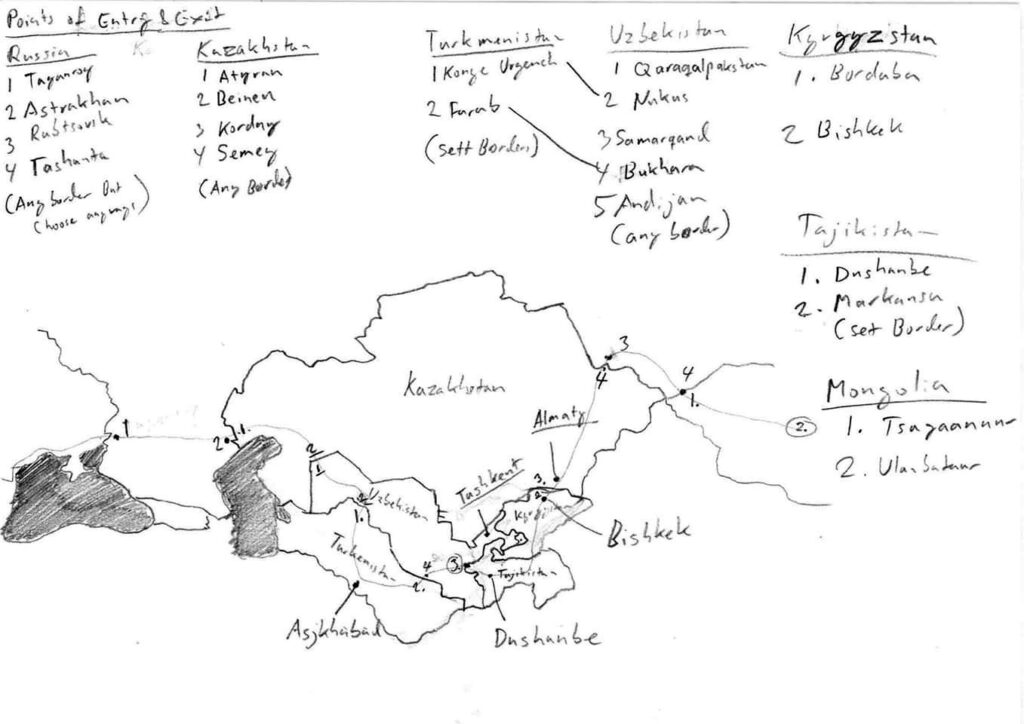 Points of Entry & Exit
Russia
1 Taganrog
2 Astrakhan
3 Rubtsovik
4 Tashanta
(Any border But
Choose anyways)
Kazakhstan
1 Atyrau
2 Beineu
3 Korday
4 Semey
(Any Border)
Turkmenistan
1 Konye Urgench
2 Farab
(sett Borders)
Uzbekistan
1 Qaraqalpakstan
2 Nukus
3 Samarqand
4 Bukhara
5 Andijan
(any border)
Kyrgyzistan
1. Bordaba
2 Bishkek
Tajikistan
1. Dushanbe
2. Markansu
(sett Border)
Mongolia
1. Tsagaannuur
2. Ulanbataar
Kazakhstan
3
4
4
1.
2.
Almaty
1
2
1.
2
1
3.
2.
Tashkent
2
Uzbekistan
1.
Bishkek
Turkenistan
4
3.
2.
Tajikistan
Asjkhabad
Dushanbe